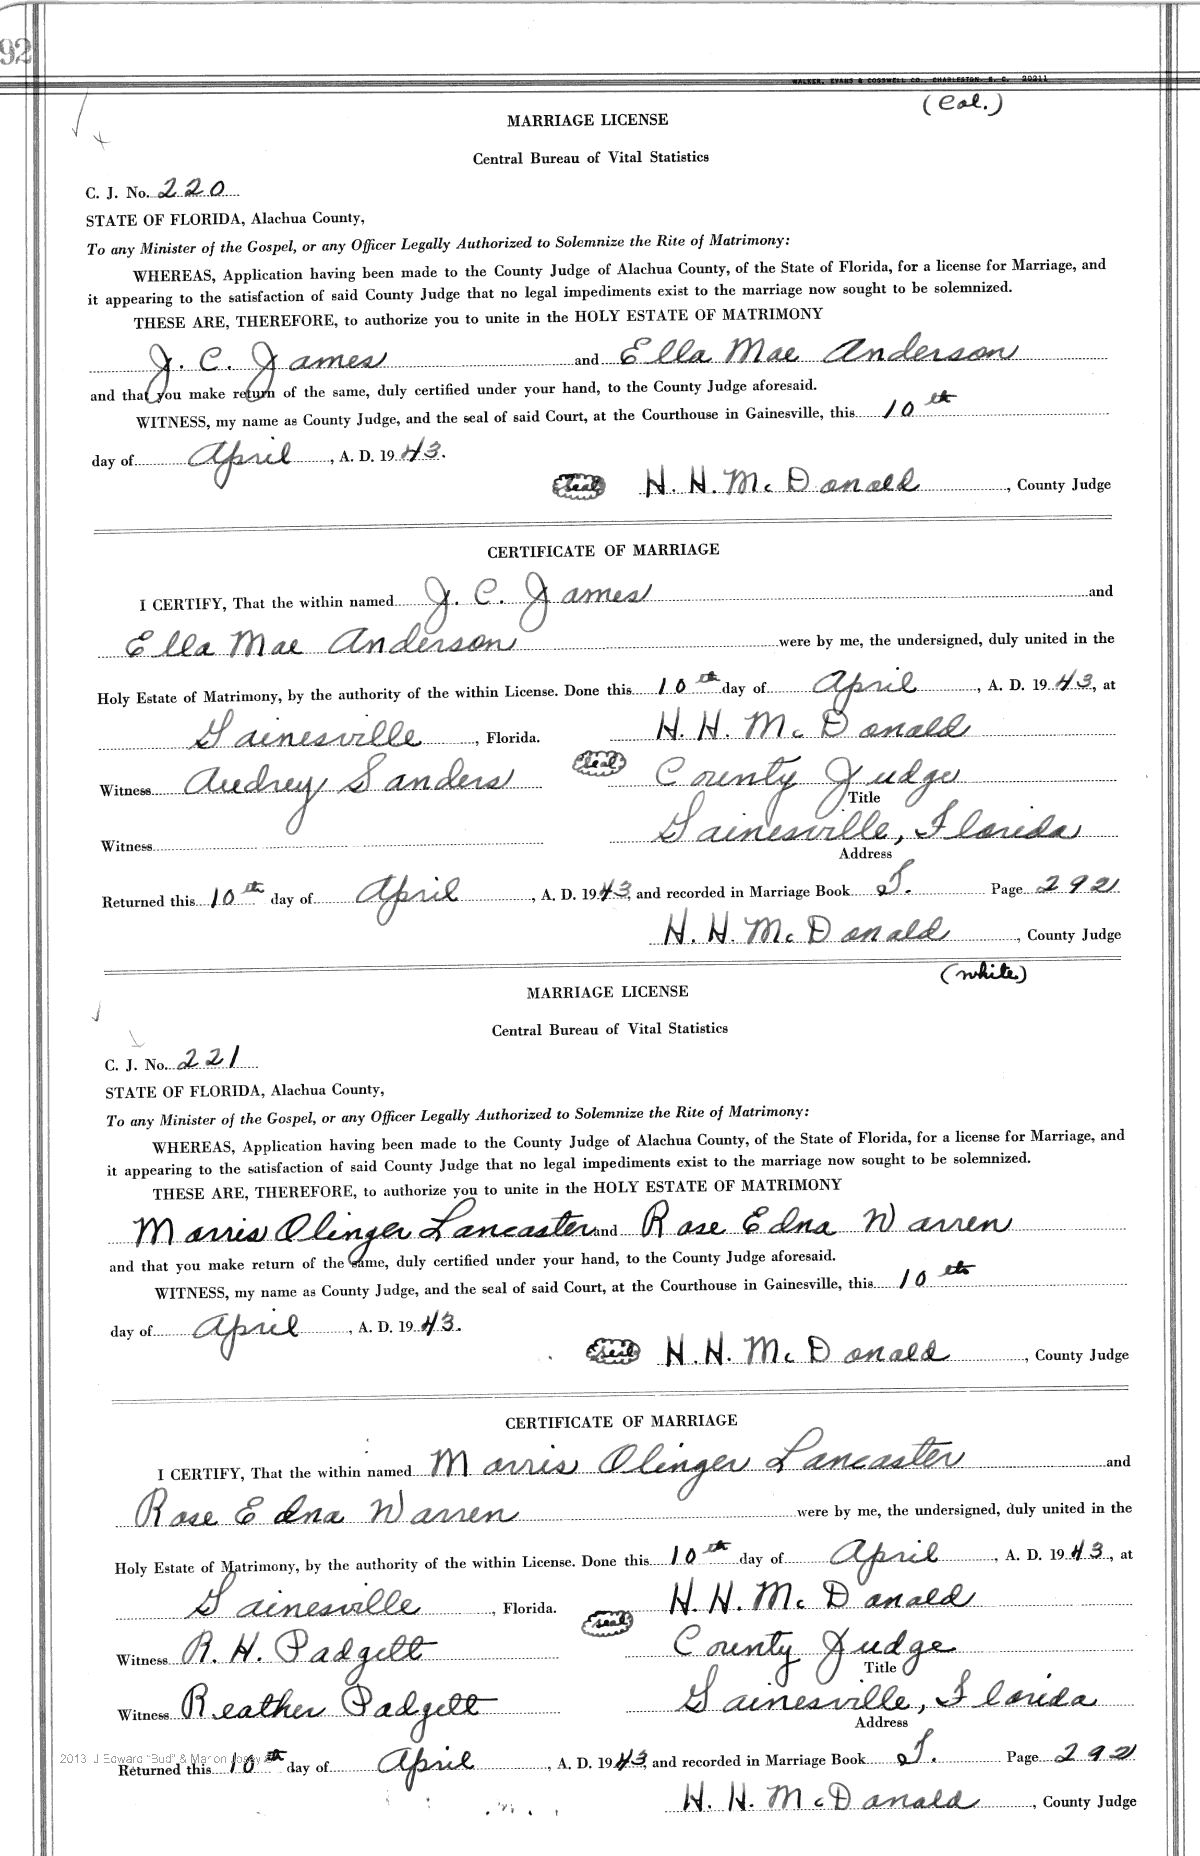 92
WALKER, EVANS & COGSWELL CO., CHARLESTON, S. C. 20211
(Col.)
MARRIAGE LICENSE
Central Bureau of Vital Statistics
C. J. No. 220
STATE OF FLORIDA, Alachua County,
To any Minister of the Gospel, or any Officer Legally Authorized to Solemnize the Rite of Matrimony:
WHEREAS, Application having been made to the County Judge of Alachua County, of the State of Florida, for a license for Marriage, and
it appearing to the satisfaction of said County Judge that no legal impediments exist to the marriage now sought to be solemnized.
THESE ARE, THEREFORE, to authorize you to unite in the HOLY ESTATE OF MATRIMONY
J. C. James and Ella Mae Anderson
and that you make return of the same, duly certified under your hand, to the County Judge aforesaid.
WITNESS, my name as County Judge, and the seal of said Court, at the Courthouse in Gainesville, this 10th
day of April, A. D. 1943.
Seal H. H. McDonald, County Judge
CERTIFICATE OF MARRIAGE
I CERTIFY, That the within named J. C. James and
Ella Mae Anderson were by me, the undersigned, duly united in the
Holy Estate of Matrimony, by the authority of the within License. Done this 10th day of April, A. D. 1943, at
Gainesville, Florida. H. H. McDonald
Witness Audrey Sanders Seal County Judge
Title
Witness Gainesville, Florida
Address
Returned this 10th day of April, A. D. 1943, and recorded in Marriage Book T. Page 292
H. H. McDonald, County Judge
(White)
MARRIAGE LICENSE
Central Bureau of Vital Statistics
C. J. No. 221
STATE OF FLORIDA, Alachua County,
To any Minister of the Gospel, or any Officer Legally Authorized to Solemnize the Rite of Matrimony:
WHEREAS, Application having been made to the County Judge of Alachua County, of the State of Florida, for a license for Marriage, and
it appearing to the satisfaction of said County Judge that no legal impediments exist to the marriage now sought to be solemnized.
THESE ARE, THEREFORE, to authorize you to unite in the HOLY ESTATE OF MATRIMONY
Morris Olinger Lancaster and Rose Edna Warren
and that you make return of the same, duly certified under your hand, to the County Judge aforesaid.
WITNESS, my name as County Judge, and the seal of said Court, at the Courthouse in Gainesville, this 10th
day of April, A. D. 1943.
Seal H. H. McDonald, County Judge
CERTIFICATE OF MARRIAGE
I CERTIFY, That the within named Morris Olinger Lancaster and
Rose Edna Warren were by me, the undersigned, duly united in the
Holy Estate of Matrimony, by the authority of the within License. Done this 10th day of April, A. D. 1943, at
Gainesville, Florida. Seal H. H. McDonald
Witness R. H. Padgett County Judge
Title
Witness Reather Padgett Gainesville, Florida
Address
2013 J Edward "Bud" & Marion
Returned this 10th day of April, A. D. 1943, and recorded in Marriage Book T. Page 292
H. H. McDonald, County Judge